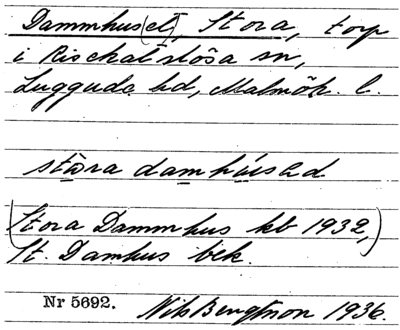 Dammhus(et), Stora, torp
i Risekatslösa sn,
Luggude hd, Malmöh. l.
stōra damhúsəd
(Stora Dammhus kb 1932,)
St. Damhus bek.
Nr 5692. Nils Bengtsson 1936.